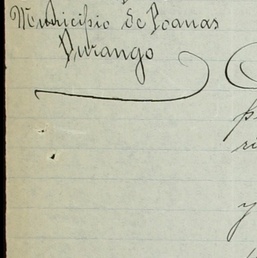 Municipio de Poanas
Durango
p
ri
y